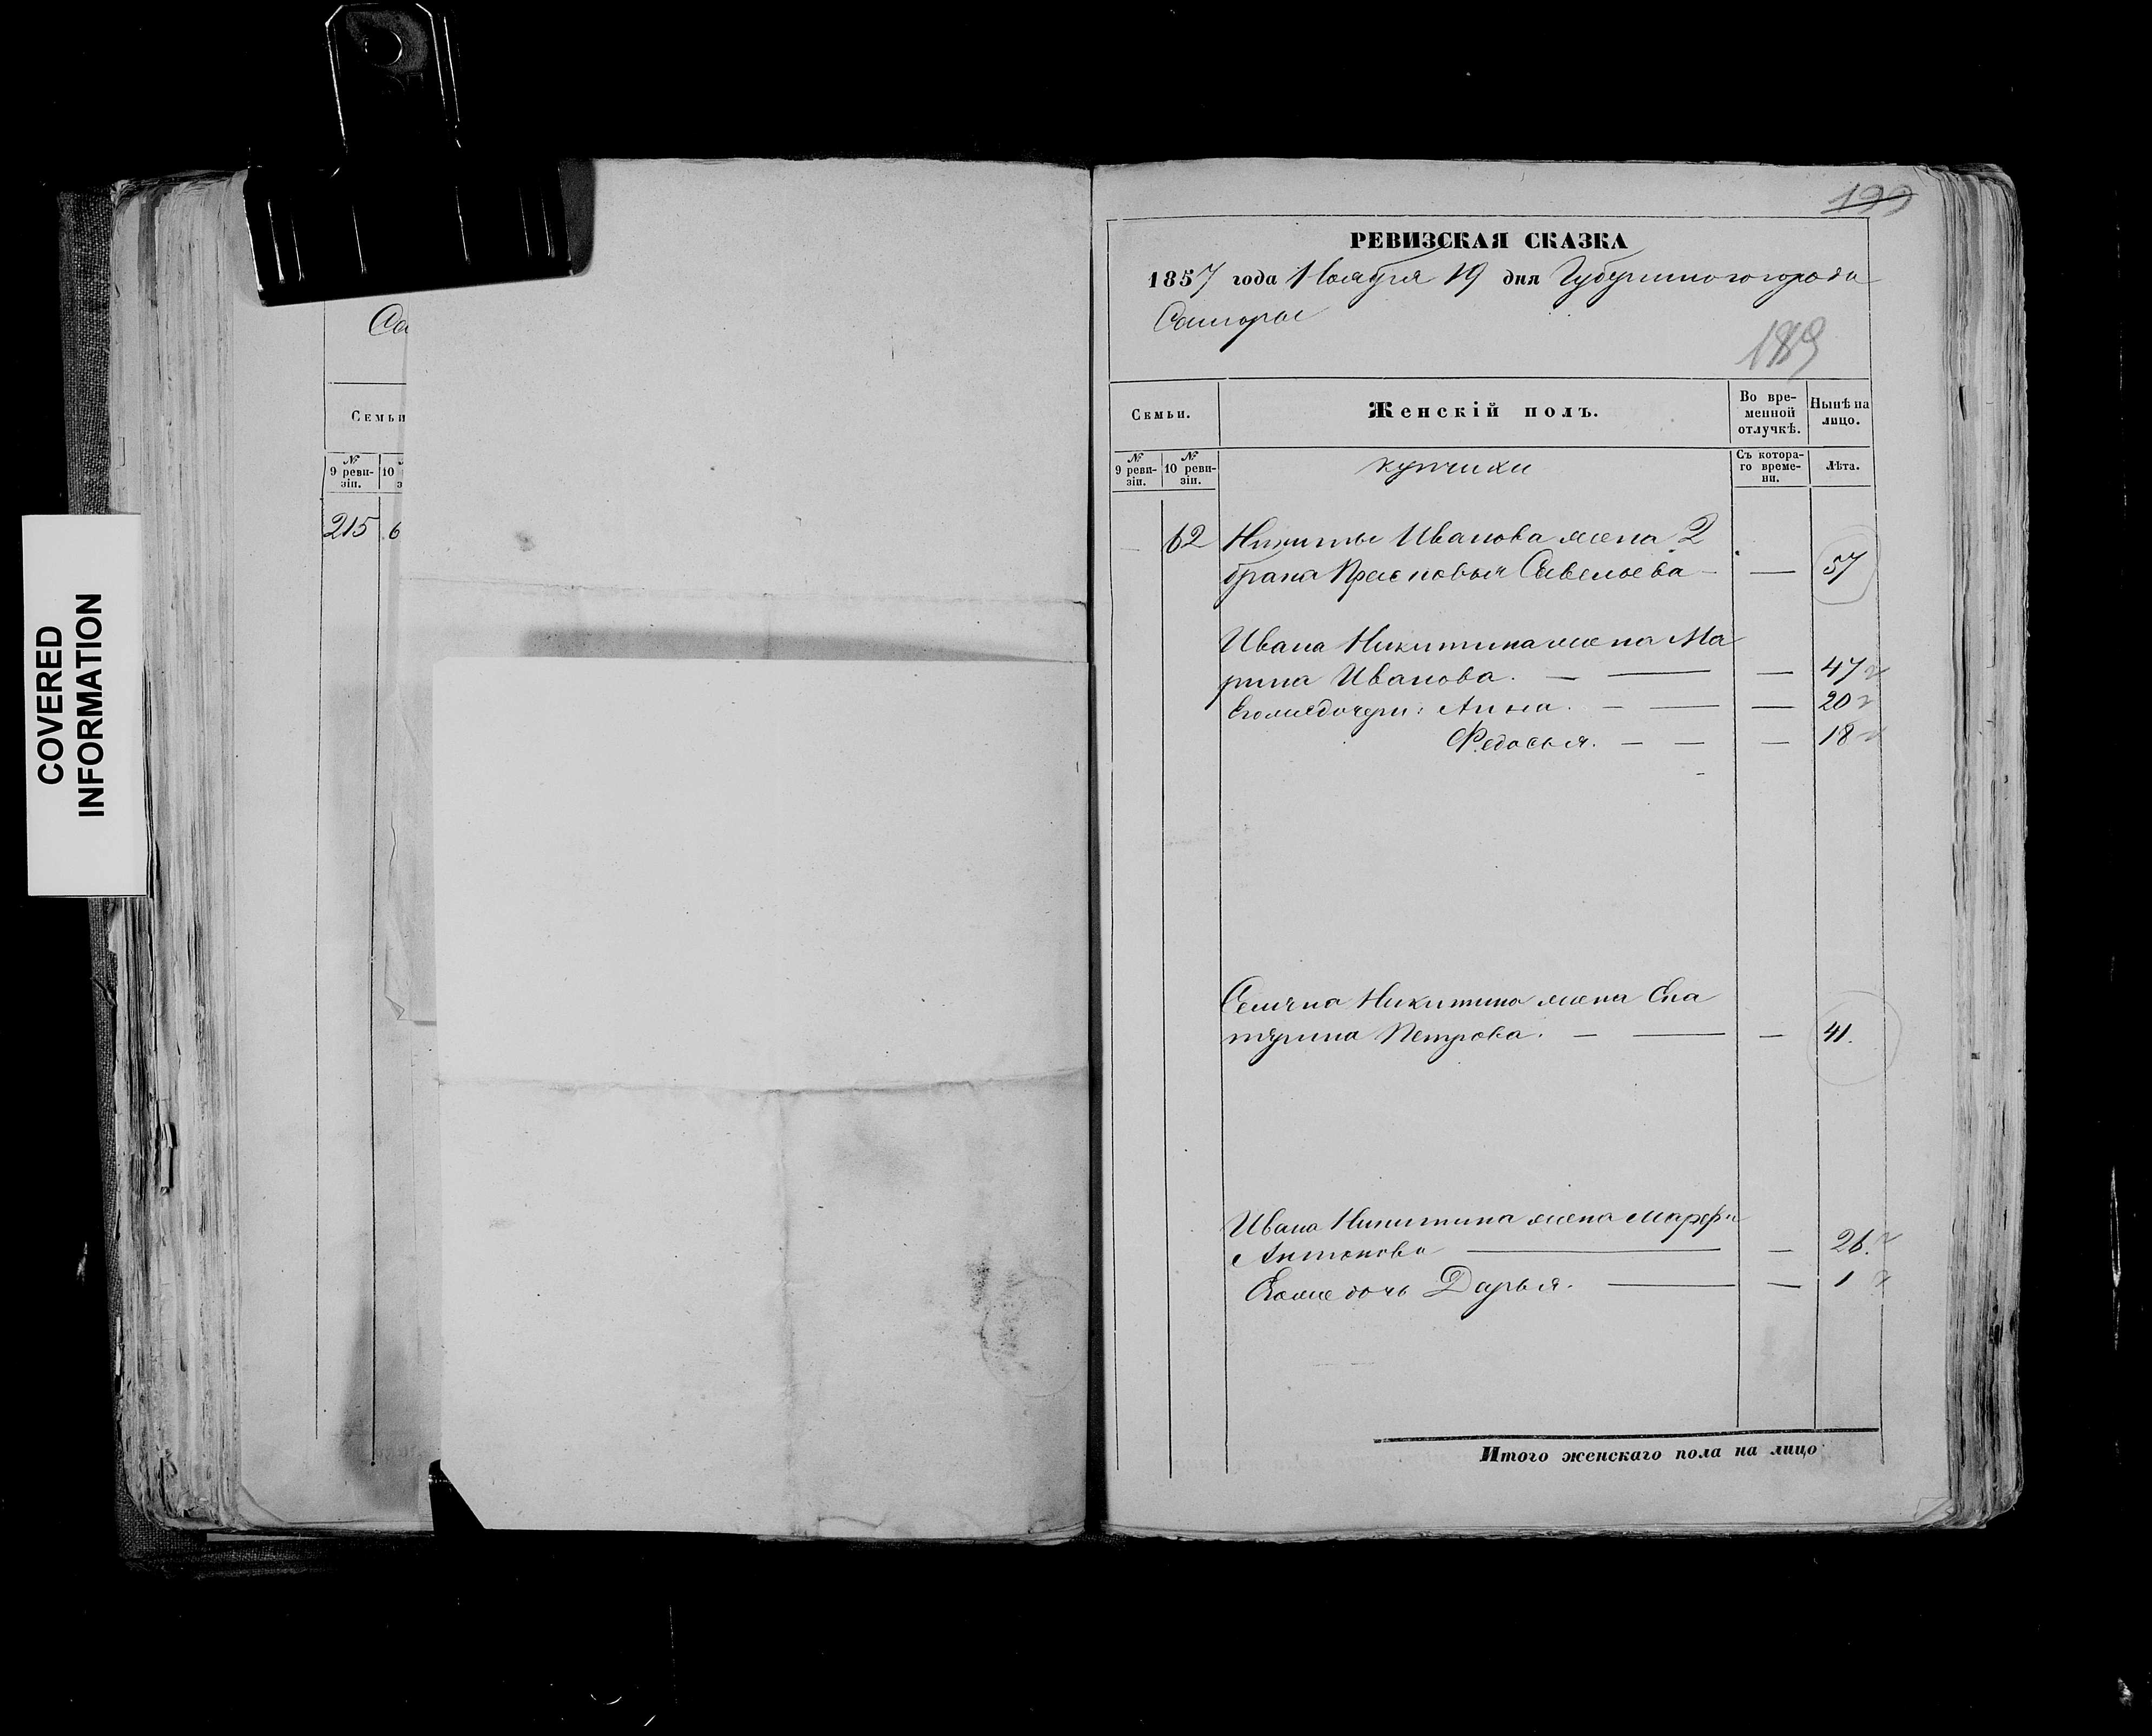 COVERED
INFORMATION
Са
Семьи
№
9 реви-
зіи.
10
215
6
199
РЕВИЗСКАЯ СКАЗКА
1857 года Ноября 19 дня Губернского города
Самары
189
Семьи.
Женскій полъ.
Во вре-
менной
отлучкѣ.
Нынѣ на
лицо.
№
9 реви-
зіи.
№
10 реви-
зіи.
купчихи
Съ котора-
го време-
ни.
Лѣта.
62 Никиты Иванова жена 2
брака Прасковья Савельева — — 57
Ивана Никитина жена Ма
рина Иванова. — — — 47
Его же дочери: Анна. — — — 20
Федосья. — — — 18
Семена Никитина жена Ека
терина Петрова. — — — 41.
Ивана Никитина жена Марфа
Антонова — — 26.
Его же дочь Дарья. — — 1
Итого женскаго пола на лицо